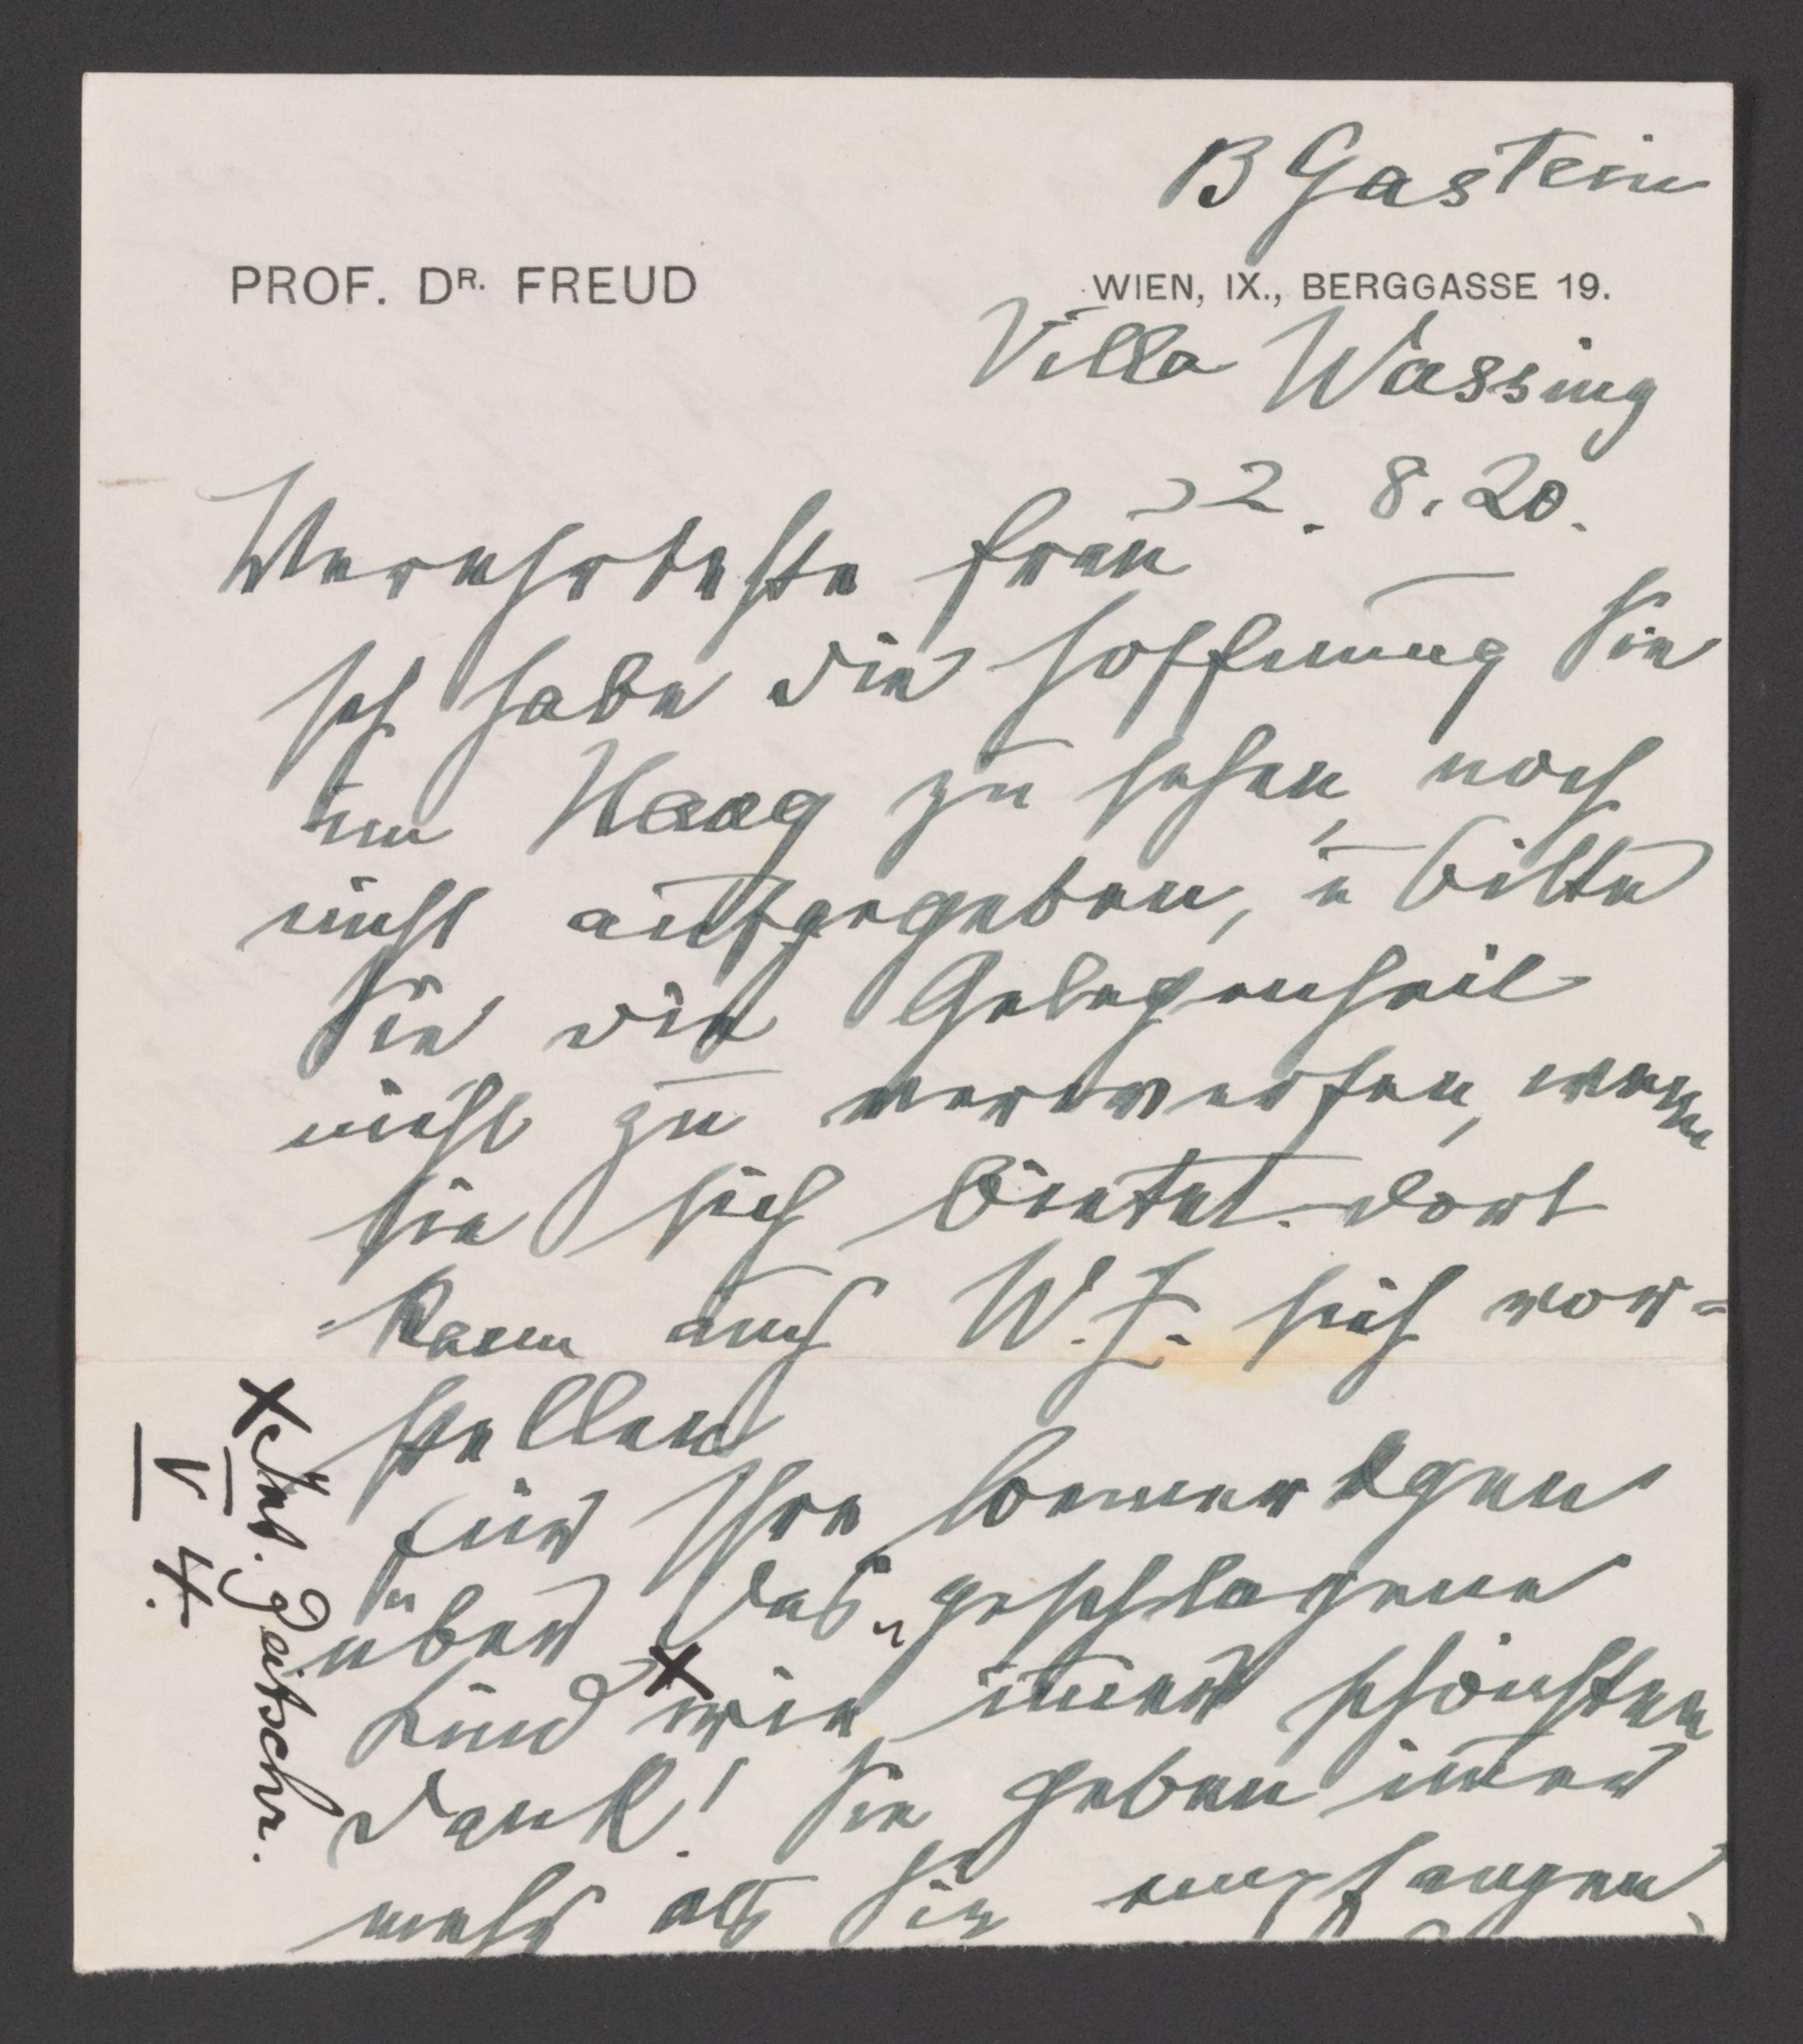 B Gastein
PROF. DR. FREUD
WIEN, IX., BERGGASSE 19.
Villa Wassing
22. 8. 20.
Verehrteste Frau
Ich habe die Hoffnung Sie
im Haag zu sehen, noch
nicht aufgegeben, u bitte
Sie die Gelegenheit
nicht zu verwerfen, wenn
sie sich bietet. Dort
kann auch W. Z. sich vor=
stellen
Für Ihre Bemerkgen
über das „geschlagene
Kind“ wie immer schönsten
Dank! Sie geben immer
mehr als Sie empfangen,
x Int. Zeitschr.
V 4.